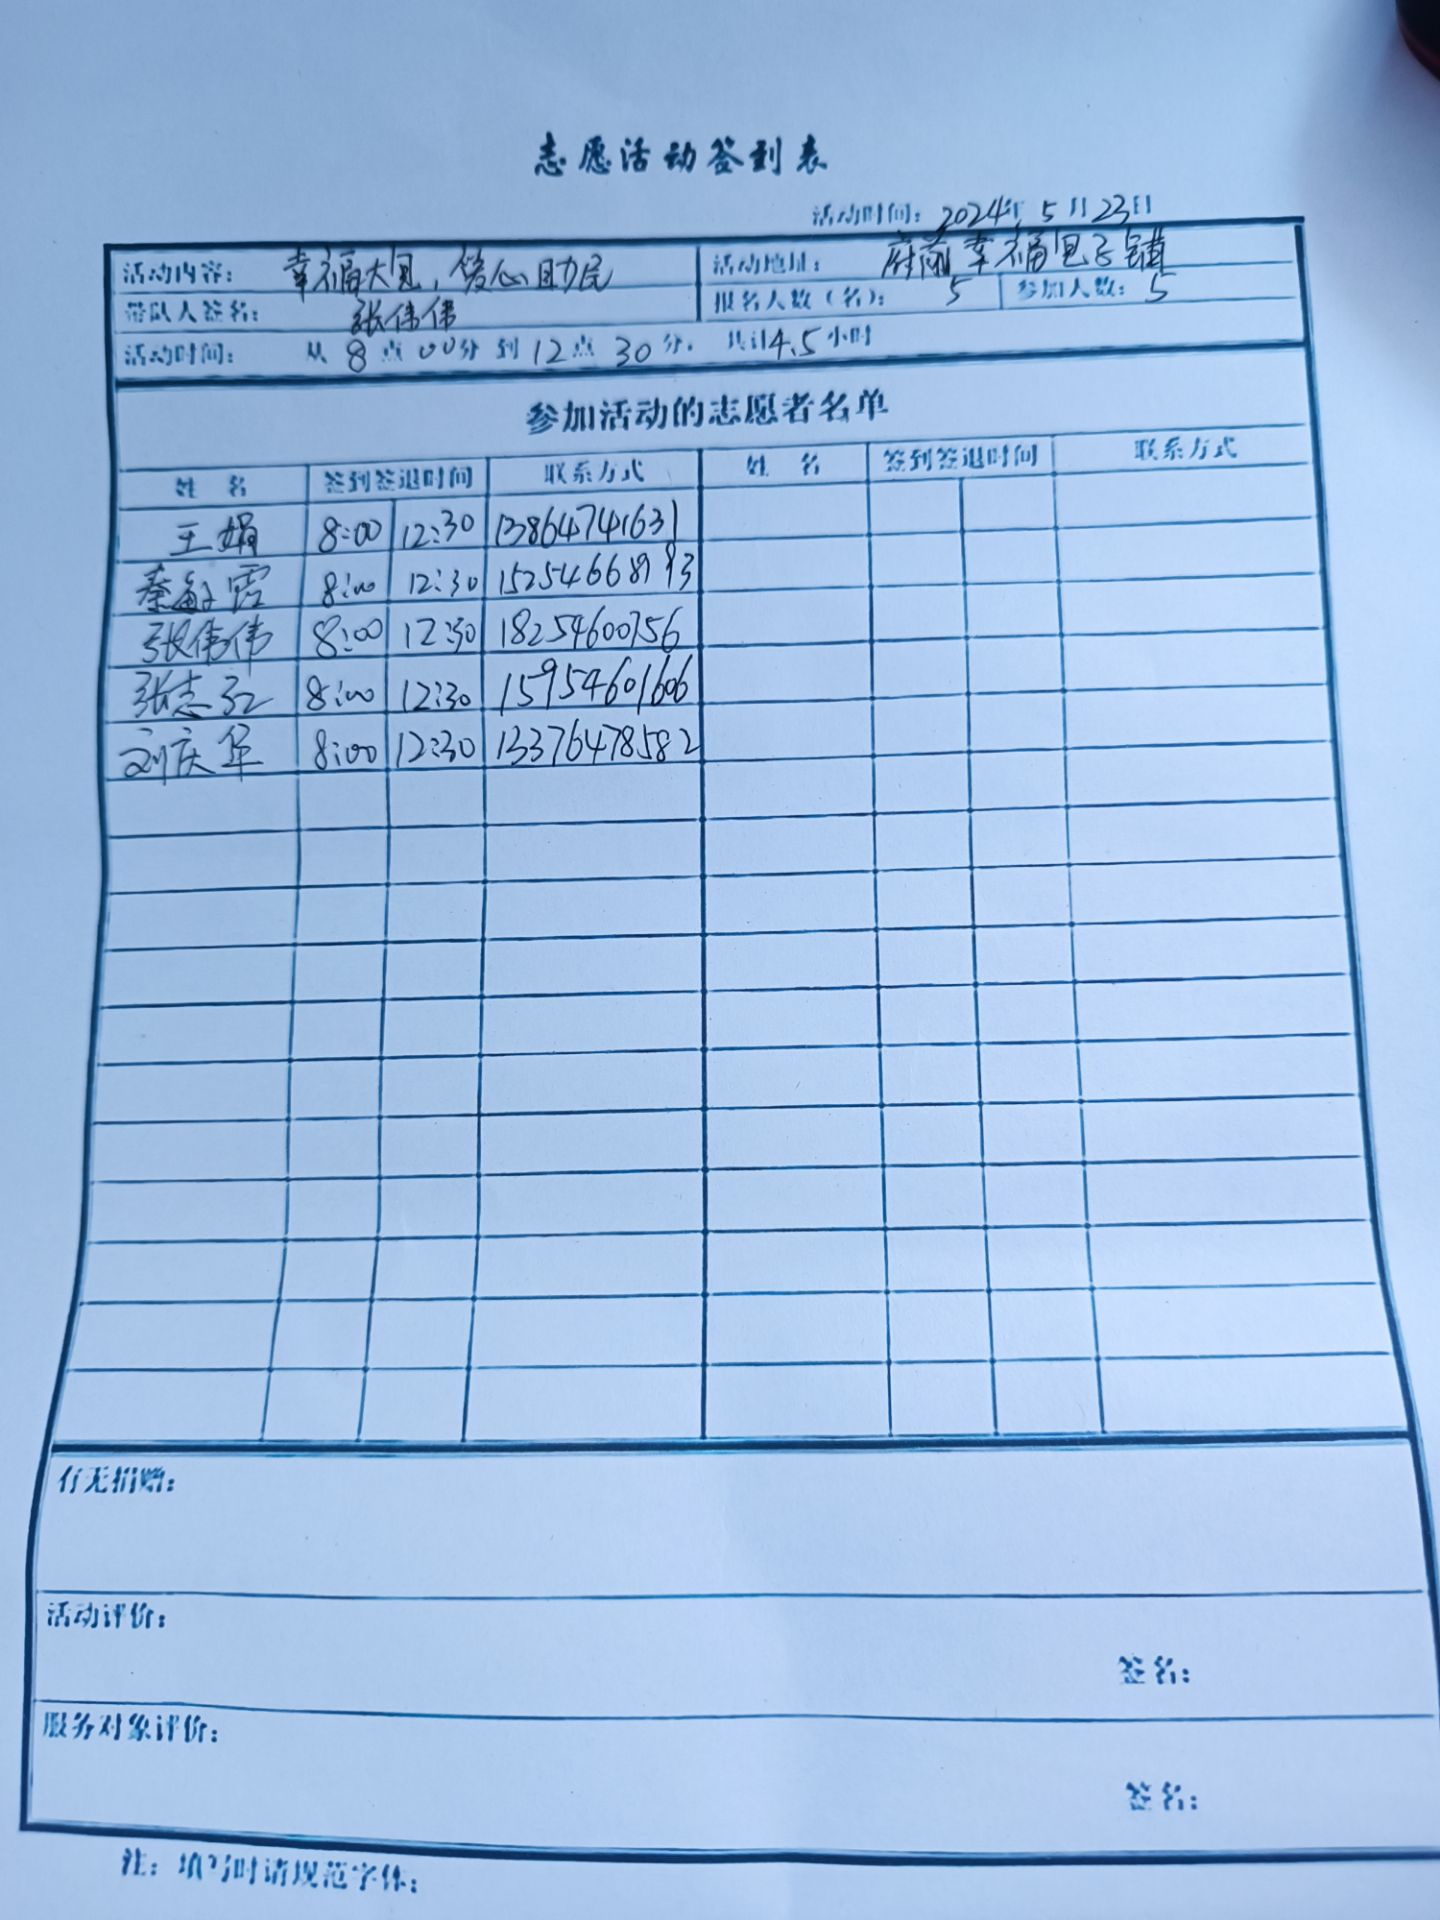 志愿活动签到表
活动时间：2024年5月23日
活动内容：幸福大包，爱心助民 活动地址：府前幸福包子铺
带队人签名：张伟伟 报名人数（名）：5 参加人数：5
活动时间：从8点00分到12点30分，共计4.5小时
参加活动的志愿者名单
姓 名 签到签退时间 联系方式 姓 名 签到签退时间 联系方式
王娟 8:00 12:30 13864741631
秦敏霞 8:00 12:30
张伟伟 8:00 12:30 18254600756
张志红 8:00 12:30 15954601606
刘庆华 8:00 12:30 13376478582
有无捐赠：
活动评价：
签名：
服务对象评价：
签名：
注：填写时请规范字体；